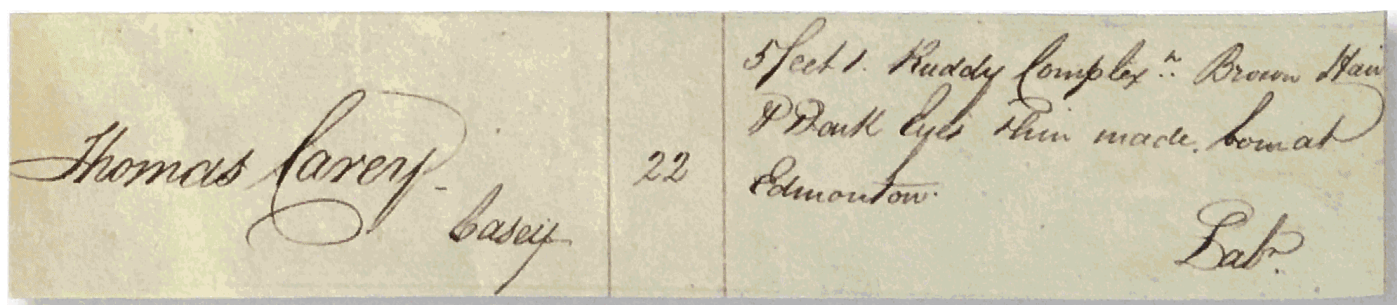 Thomas Carey
Casey
22
5 feet 1. Ruddy Complexn. Brown Hair
& Dark Eyes thin made, born at
Edmonton.
Labr.